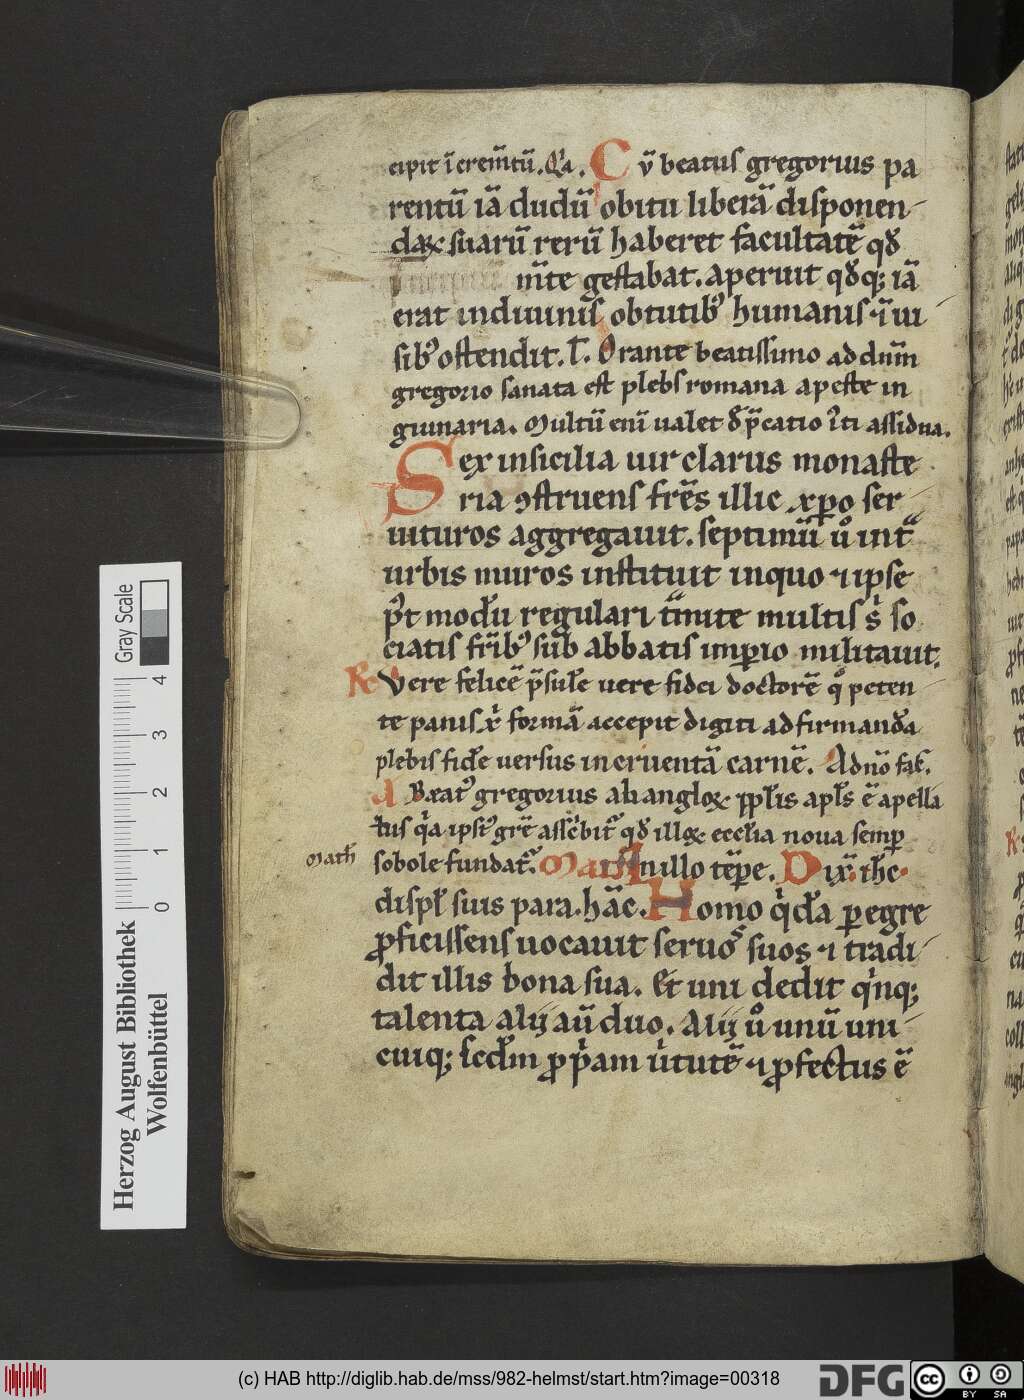 cipit ī crem̄tū. Q̄a. Cū beatus gregorius pa
rentū iā dudū obitu liberā disponen-
daꝝ suarū rerū haberet facultatē qđ
m̄te gestabat. aperuit qđꝗ; iā
erat indiuinis obtutibꝰ humanis ⁊ ī ui
sibꝰ ostendit. Orante beatissimo ad dn̄m
gregorio sanata est plebs romana apeste in
guinaria. Multū enī ualet dep̄catio iti assidua.
Sex insicilia uir clarus monaste
ria ꝯstruens fr̄es illic xp̄o ser
uituros aggregauit. septimū uͦ int̄
urbis muros instituit inquo ⁊ ipse
modū regulari t̄mite multis so
ciatis fr̄ibꝰ sub abbatis imꝑio militauit.
R̄ Vere felicē p̄sulē uere fidei doctorē qͦ peten-
te panis xͥ formā accepit digiti adfirmanda
plebis fidē uersus incruentā carnē. Ad nō
A Beatꝰ gregorius ab angloꝝ ꝓp̄lis apl̄s ē apella
tus q̄a ipsꝰ gr̄e asscͥbitᷣ qđ illoꝝ eccl̄ia noua semꝑ
Math̄ sobole fundatᷣ. In illo tēpe. Dix̄ ih̄c
displ̄ suis para. hāc. Homo qͥdā peregre
ꝓficissens uocauit seruos suos ⁊ tradi-
dit illis bona sua. Et uni dedit qͥnꝗ;
talenta alij aū duo. Alij uͦ unū uni-
cuiꝗ; scđm ꝓpͥam uͥtutē ⁊ ꝓfectus ē
Gray Scale
4
3
2
1
0
Herzog August Bibliothek
Wolfenbüttel
(c) HAB http://diglib.hab.de/mss/982-helmst/start.htm?image=00318
DFG
cc
BY SA